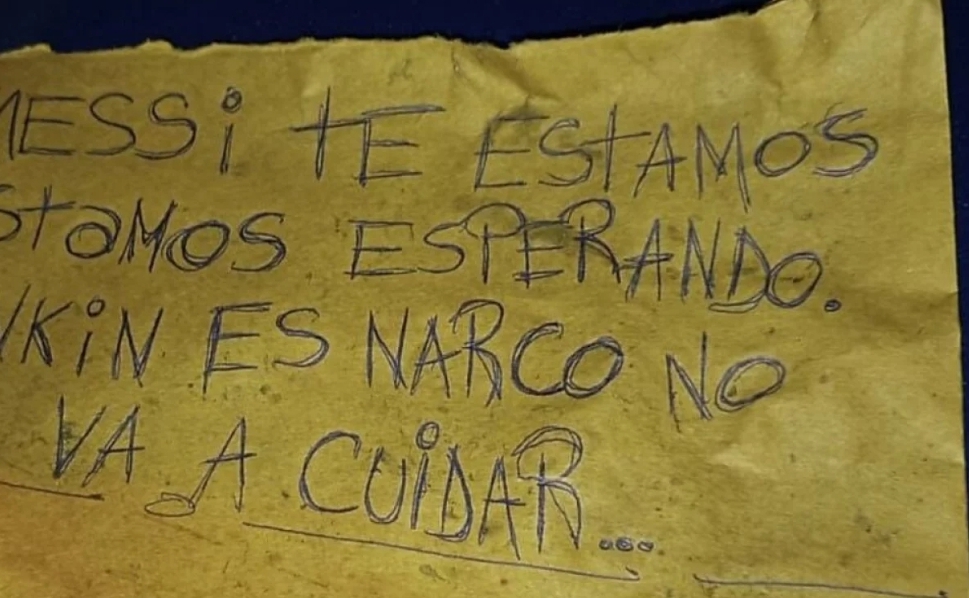 MESSi tE EStAMOS
StaMOS ESPERANDO.
VKiN ES NARCO NO
VA A CUiDAR...